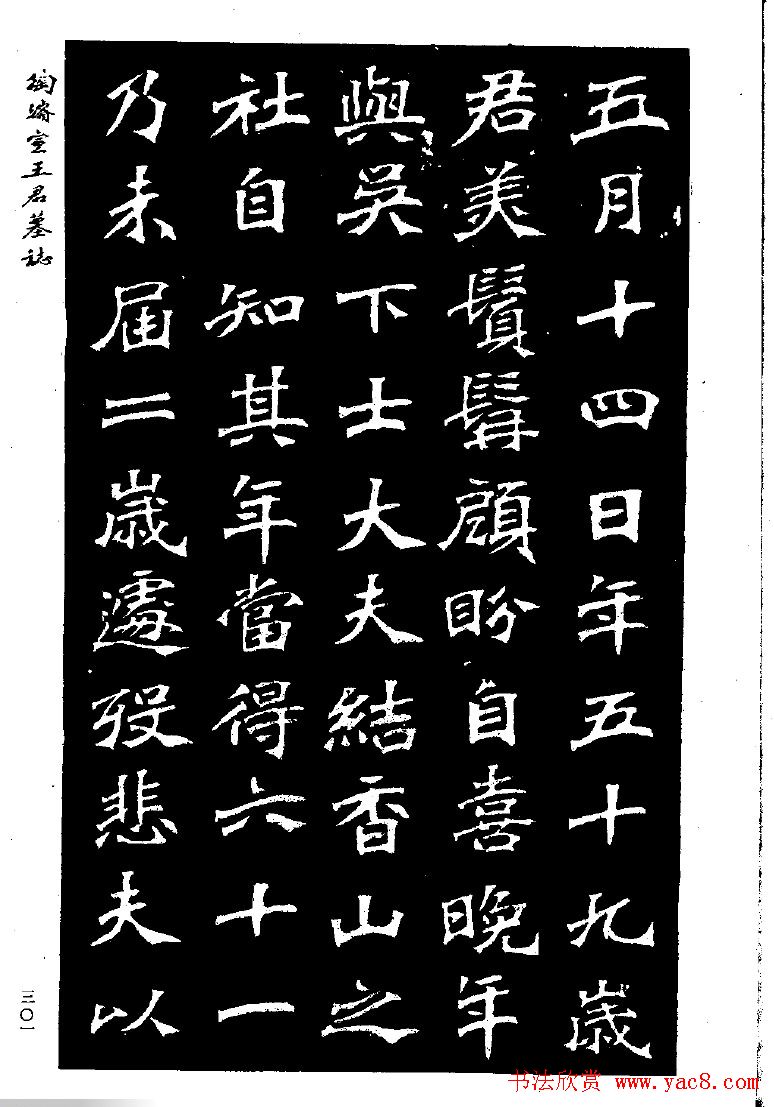 五月十四日年五十九歲
君美鬚髯顧盼自喜晚年
與吳下士大夫結香山之
社自知其年當得六十一
乃未屆二歲遽歿悲夫以
陶濬宣王君墓誌
三〇一
书法欣赏 www.yac8.com